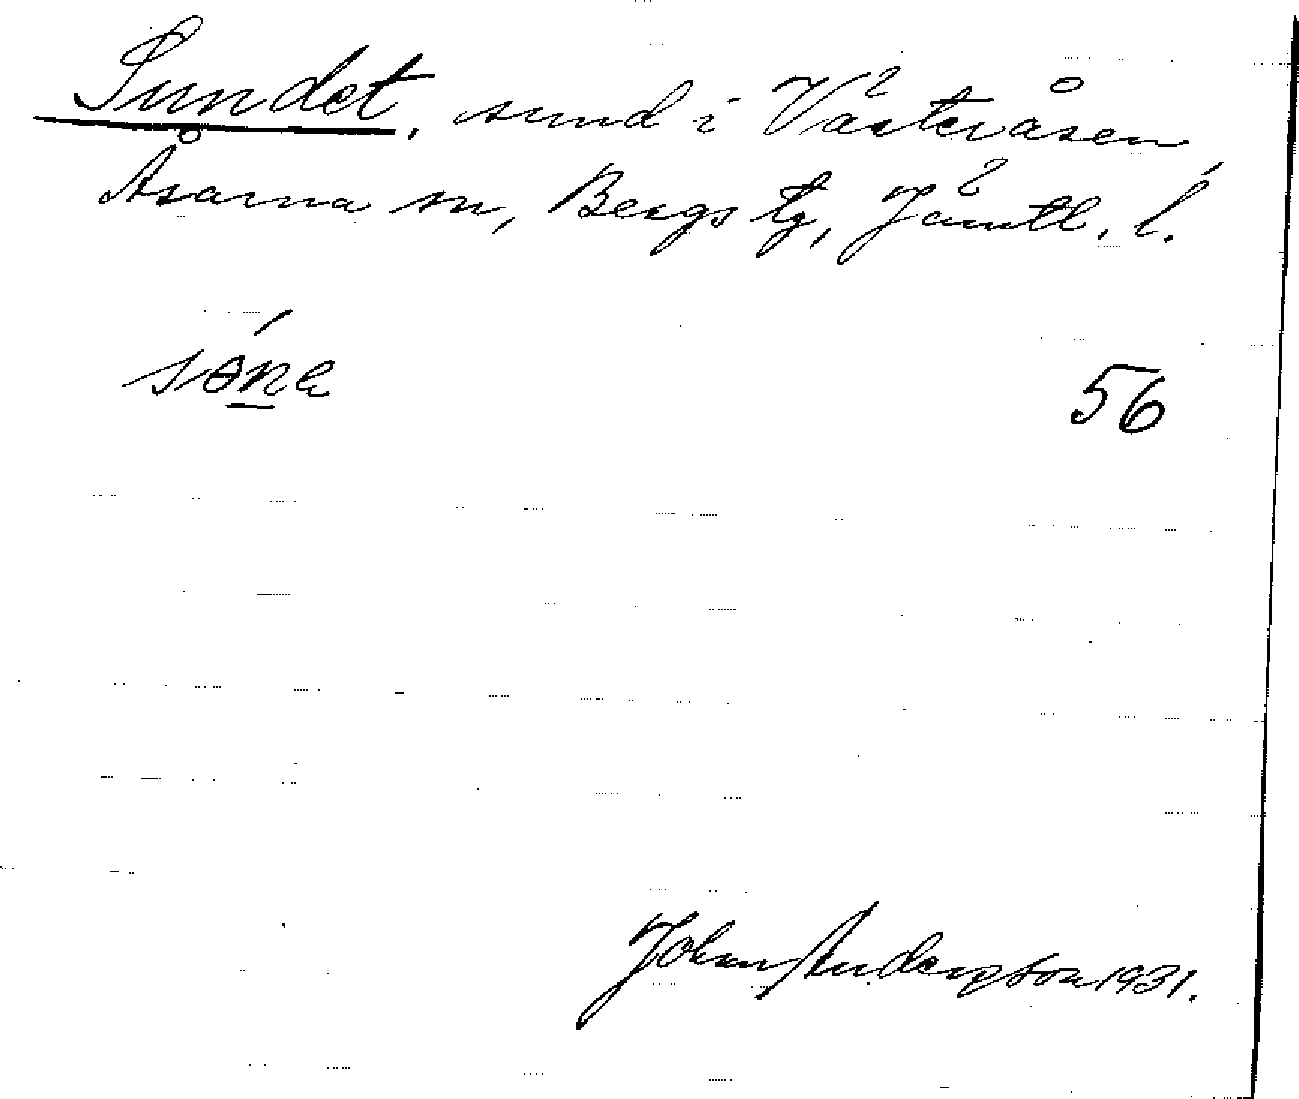 Sundet, sund i Västeråsen,
Åsarna sn, Bergs tg, Jämtl. l.
56
John Anderzson 1931.